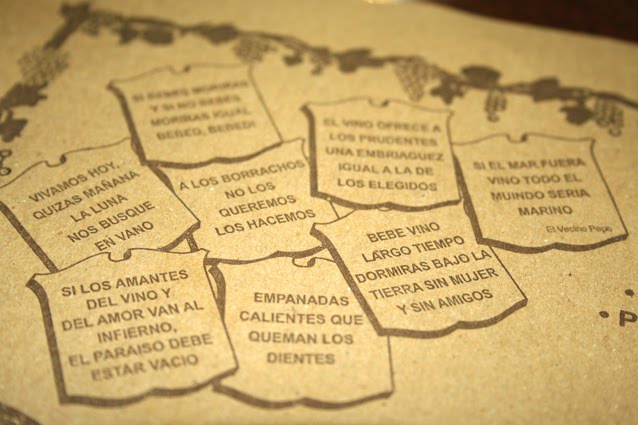 SI BEBES MORIRAS
Y SI NO BEBES,
MORIRAS IGUAL,
BEBED, BEBED!
EL VINO OFRECE A
LOS PRUDENTES
UNA EMBRIAGUEZ
IGUAL A LA DE
LOS ELEGIDOS
SI EL MAR FUERA
VINO TODO EL
MUNDO SERIA
MARINO
El Vecino Pepo
VIVAMOS HOY,
QUIZAS MAÑANA
LA LUNA
NOS BUSQUE
EN VANO
A LOS BORRACHOS
NO LOS
QUEREMOS
LOS HACEMOS
BEBE VINO
LARGO TIEMPO
DORMIRAS BAJO LA
TIERRA SIN MUJER
Y SIN AMIGOS
SI LOS AMANTES
DEL VINO Y
DEL AMOR VAN AL
INFIERNO,
EL PARAISO DEBE
ESTAR VACIO
EMPANADAS
CALIENTES QUE
QUEMAN LOS
DIENTES